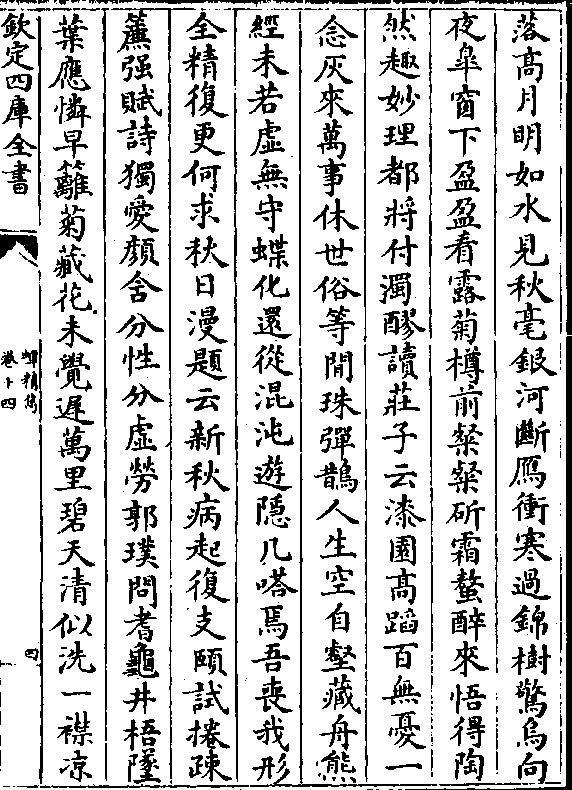 落高月明如水見秋毫銀河斷雁衝寒過錦樹驚烏向
夜臯窗下盈盈看露菊樽前粲粲斫霜螯醉來悟得陶
然趣妙理都將付濁醪讀莊子云漆園高蹈百無憂一
念灰來萬事休世俗等閒珠彈鵲人生空自壑藏舟熊
經未若虛無守蝶化還從混沌遊隱几嗒焉吾喪我形
全精復更何求秋日漫題云新秋病起復支頤試捲疎
簾强賦詩獨愛顔舍分性分虛勞郭璞問耆龜井梧墜
葉應憐早籬菊藏花未覺遲萬里碧天清似洗一襟凉
欽定四庫全書
卷十四
四